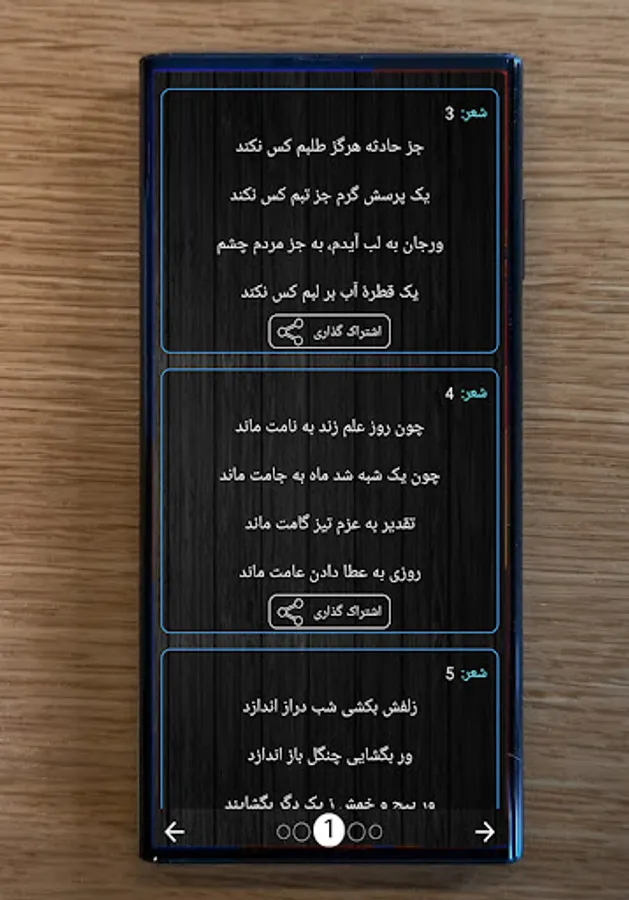 شعر: 3
جز حادثه هرگز طلبم کس نکند
یک پرسش گرم جز تبم کس نکند
ورجان به لب آیدم، به جز مردم چشم
یک قطرهٔ آب بر لبم کس نکند
اشتراک گذاری
شعر: 4
چون روز علم زند به نامت ماند
چون یک شبه شد ماه به جامت ماند
تقدیر به عزم تیز گامت ماند
روزی به عطا دادن عامت ماند
اشتراک گذاری
شعر: 5
زلفش بکشی شب دراز اندازد
ور بگشایی چنگل باز اندازد
ور پیچ و خمش ز یک دگر بگشایند
1